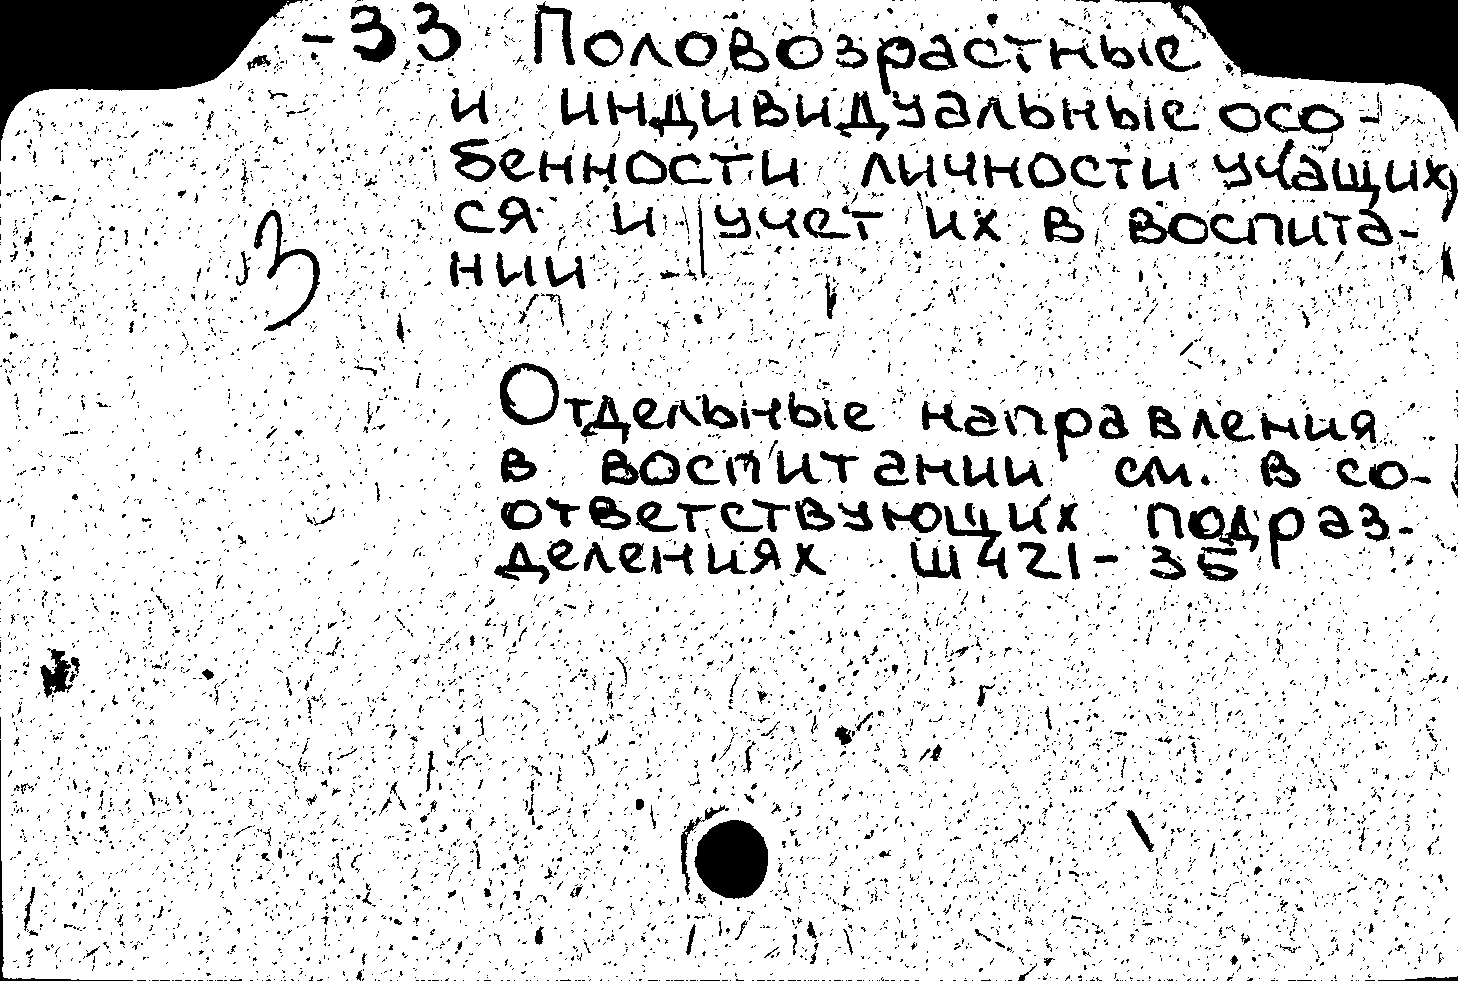 -33 Половозрастные
и индивидуальные осо-
бенности личности учащих
ся и учет их в воспита-
нии
3
Отдельные направления
в воспитании см. в со-
ответствующих подраз-
делениях Ш421-35